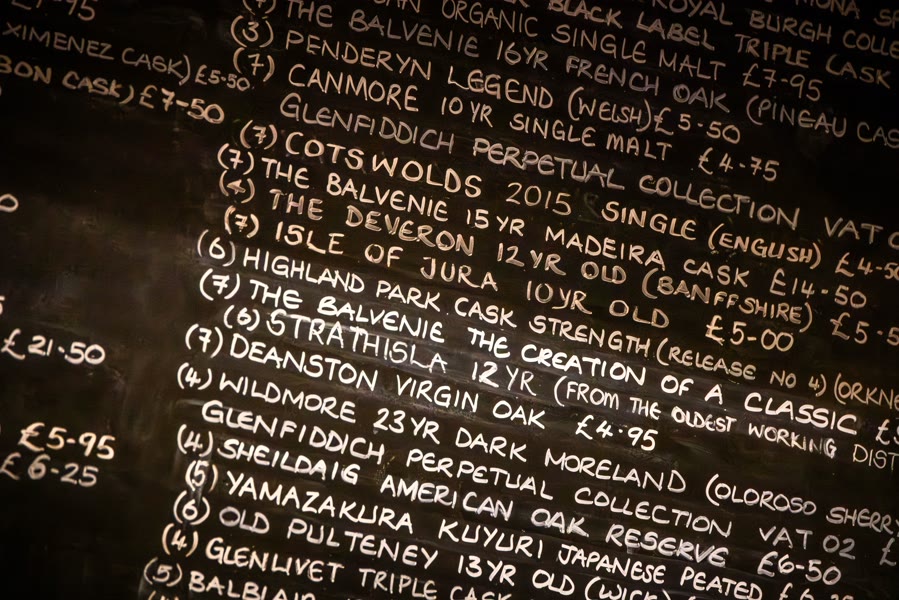 XIMENEZ CASK) £5-50
CASK) £7-50
£21-50
£5-95
£6-25
BLACK LABEL TRIPLE CASK
ORGANIC SINGLE MALT £7-95
ROYAL BURGH
(3) THE BALVENIE 16YR FRENCH OAK (PINEAU
(7) PENDERYN LEGEND (WELSH) £5-50
CANMORE 10YR SINGLE MALT £4-75
GLENFIDDICH PERPETUAL COLLECTION VAT
(7) COTSWOLDS 2015 SINGLE (ENGLISH) £4-50
(7) THE BALVENIE 15YR MADEIRA CASK £14-50
(4) THE DEVERON 12YR OLD (BANFFSHIRE) £5-5
(7) ISLE OF JURA 10YR OLD £5-00
(6) HIGHLAND PARK CASK STRENGTH (RELEASE NO 4) (ORKNE
(7) THE BALVENIE THE CREATION OF A CLASSIC
(6) STRATHISLA 12YR (FROM THE OLDEST WORKING DIST
(7) DEANSTON VIRGIN OAK £4-95
(4) WILDMORE 23YR DARK MORELAND (OLOROSO SHERRY
GLENFIDDICH PERPETUAL COLLECTION VAT 02 £
(4) SHEILDAIG AMERICAN OAK RESERVE £6-50
(5) YAMAZAKURA KUYURI JAPANESE PEATED
(6) OLD PULTENEY 13YR OLD (WICK)
(4) GLENLIVET TRIPLE CASK
(5) BALBLAIR